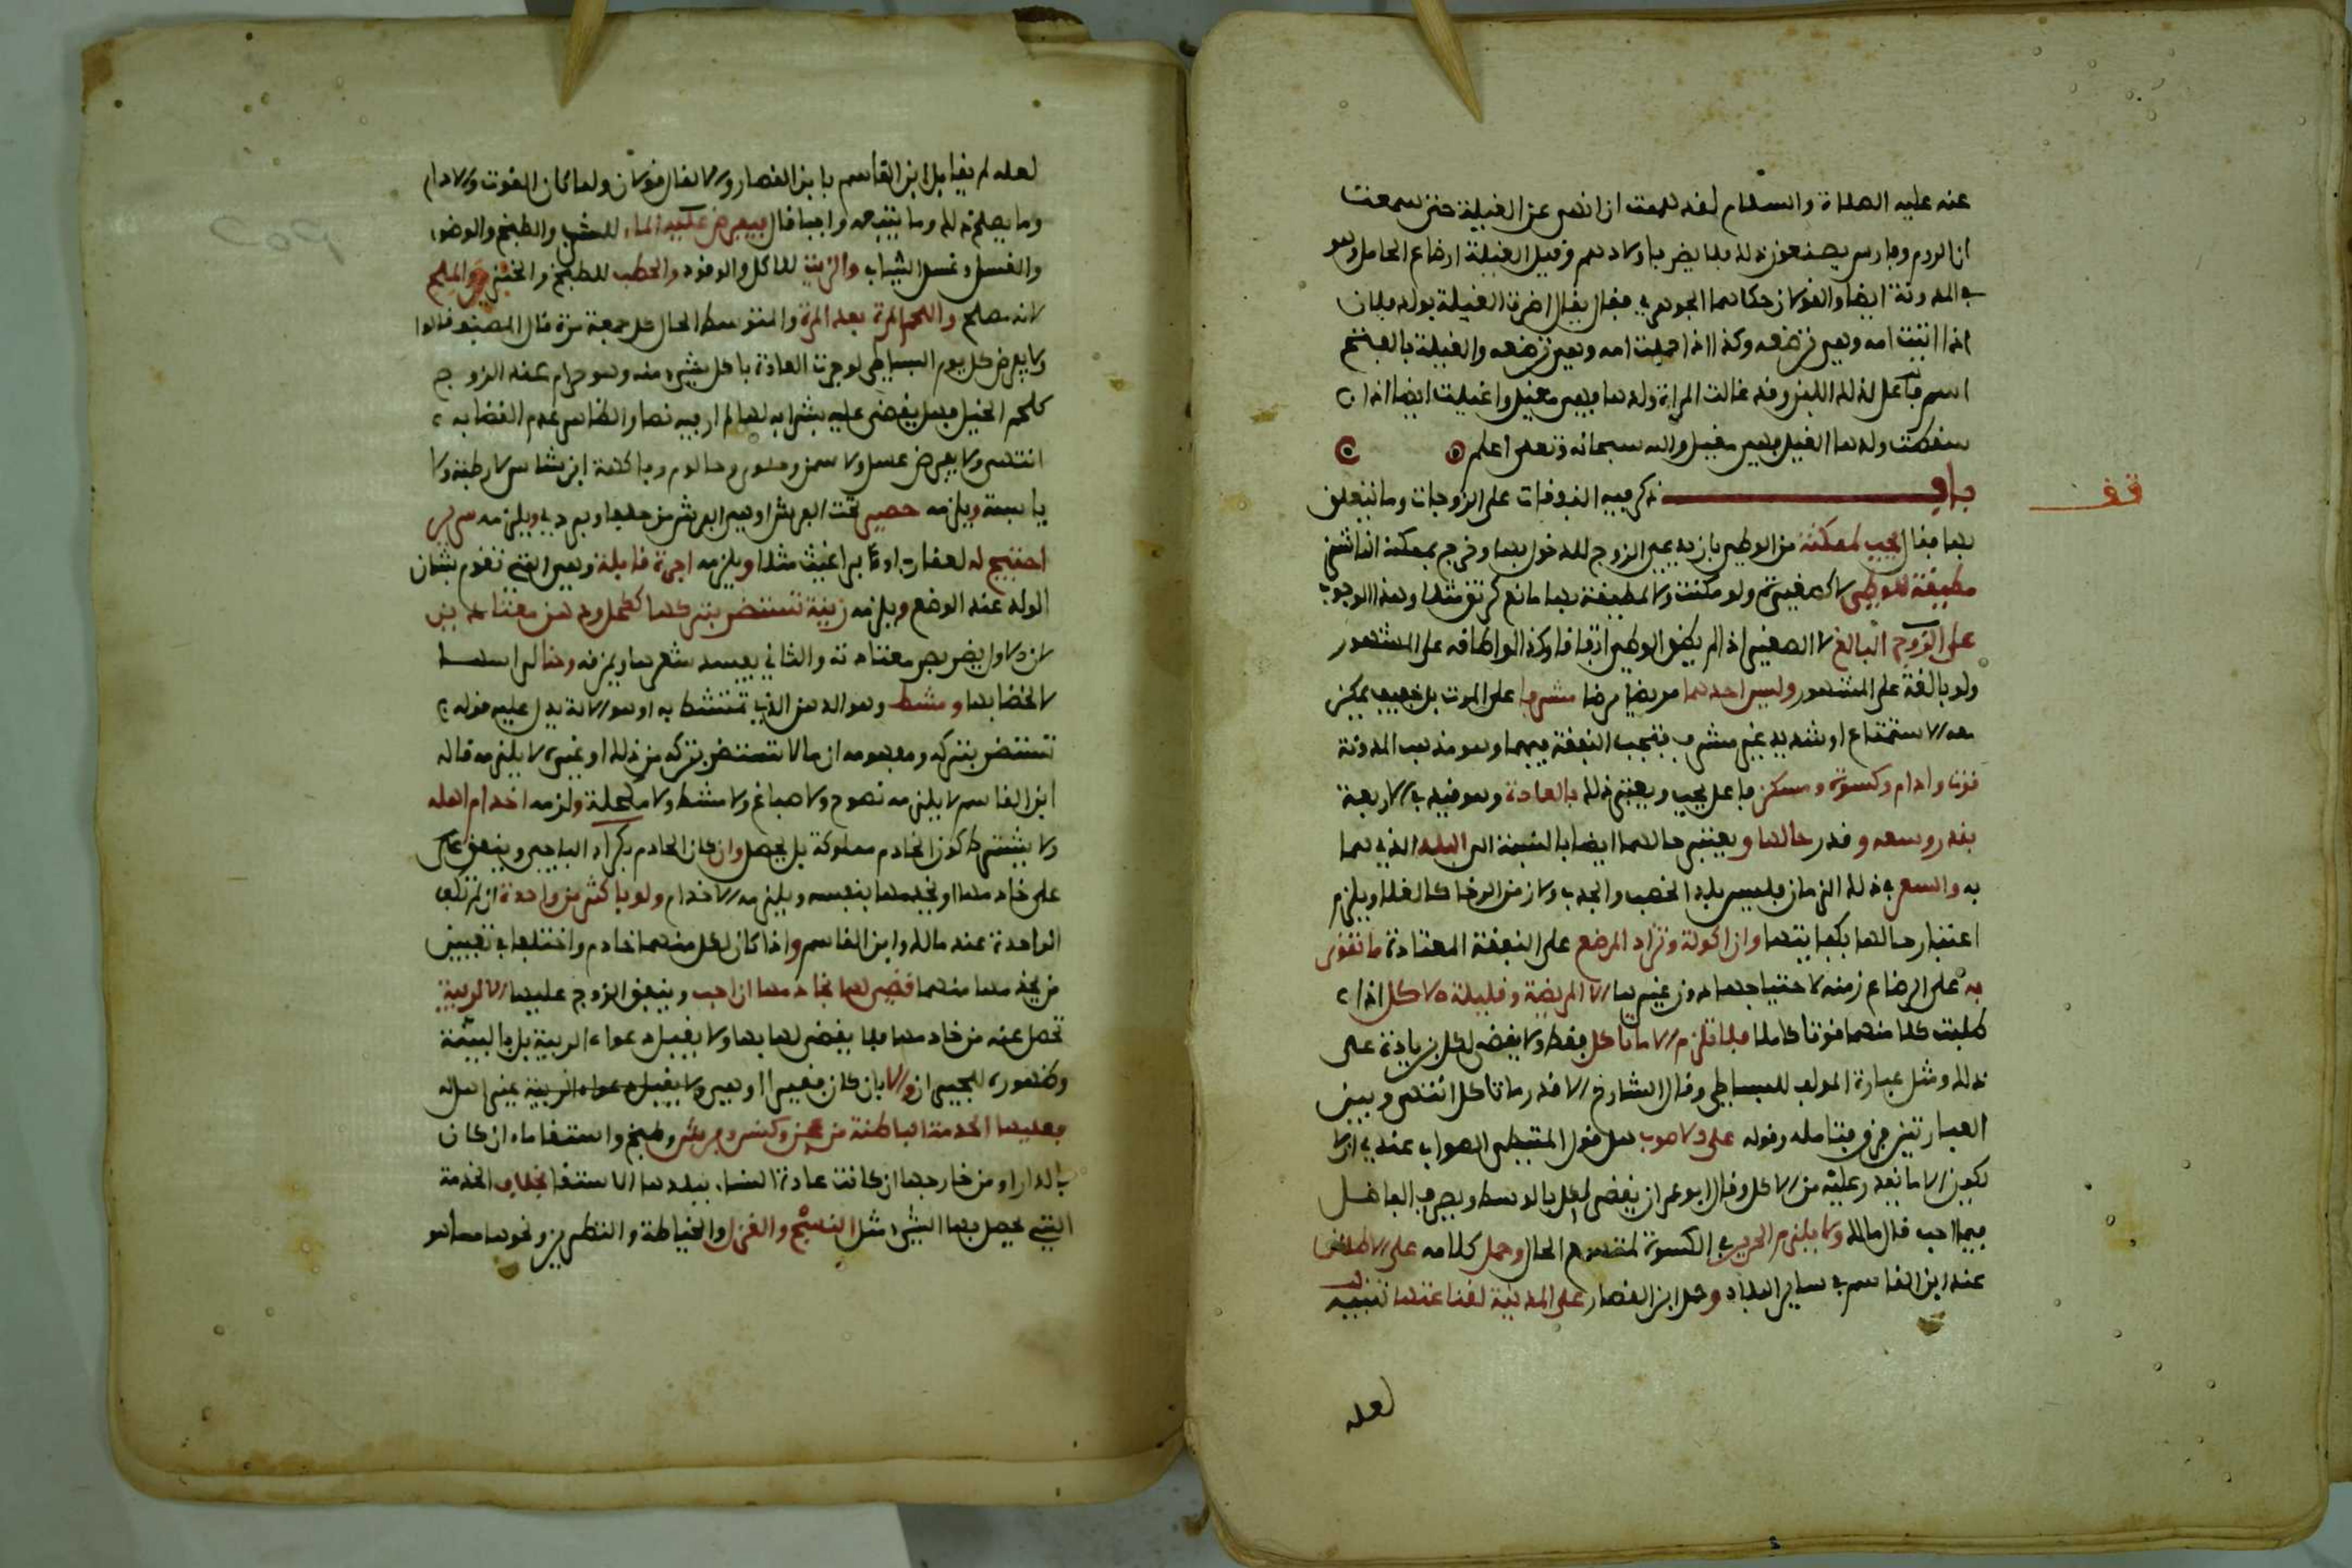 عنه عليه الصلاة والسلام لقد هممت ان انهى عن الغيلة حتى سمعت
ان الروم وفارس يصنعون ذلك فلا يضر باولادهم وقيل الغيلة ارضاع الحامل وهو
في المدونة ايضا والقولان حكاهما الجوهري فقال يقال اضرت الغيلة بولد فلان
اذا اتيت امه وهي ترضعه وكذا اذا حملت امه وهي ترضعه والغيلة بالفتح
اسم ذلك اللبن وقد غالت المراة ولدها فهي مغيل واغيلت ايضا اذا
سقت ولدها الغيل فهي مغيل والله سبحانه وتعلى اعلم
قف
باب ذكر فيه النفقات على الزوجات وما يتعلق
بها فقال يجب لممكنة من الوطى بان يدعى الزوج للدخول بها وخرج بممكنة الناشز
مطيقة للوطى لا كصغيرة ولو مكنت ولا لمطيقة بها مانع كرتق مثلا وهذا الوجوب
على الزوج البالغ لا الصغير اذا لم يطق الوطى اتفاقا وكذا لو اطاقه على المشهور
ولو بالغة على المشهور وليس احدهما مريضا مرضا مشرفا على الموت بل خفيف يمكن
معه الاستمتاع او شديد غير مشرف فتجب النفقة فيهما وهو مذهب المدونة
قوت وادام وكسوة ومسكن فاعل يجب ويعتبر ذلك بالعادة وهو قيد في الاربعة
بقدر وسعه وقدر حالها ويعتبر حالهما ايضا بالنسبة الى البلد الذي هما
به والسعر في ذلك الزمان فليس بلد الخصب والجدب ولا زمن الرخا كالغلا ويلزم
اعتبار حالها بكفايتها وان اكولة وتزاد المرضع على النفقة المعتادة ما تقوى
به على الرضاع زمنه لاحتياجها دون غيرها الا المريضة وقليلة الاكل اذا
طلبت كلا منهما قوتا كاملا فلا تلزم الا ما تاكل فقط ولا يقضى لكل بزيادة على
ذلك ومثل عبارة المولف للبساطي وقال الشارح الا قدر ما تاكل انتهى وبين
العبارتين فرق فتامله وقوله على الاصوب هل قول المتيطي الصواب عندي ان لا
يكون الا ما تقدر عليه من الاكل وقال ابو عمران يقضى لها بالوسط ويصرف الفاضل
فيما احب قال مالك ولا يلزم الحرير في الكسوة لمتسع الحال وحمل كلامه على الاطلاق
عند ابن القاسم في ساير البلاد وحمل ابن القصار على المدنية لقناعتها تنبيه
لعله
لعله لم يقابل ابن القاسم بابن القصار والا لقال قولان ولما كان القوت والادام
وما يصلح ذلك وما يتبعه واجبا قال فيفرض عليه الماء للشرب والطبخ والوضوء
والغسل وغسل الثياب والزيت للاكل والوقود والحطب للطبخ والخبز والملح
لانه مصلح واللحم المرة بعد المرة والمتوسط الحال كل جمعة مرة قال المصنف قالوا
ولا يفرض كل يوم البساطي لو جرت العادة باكل شيء منه وهو حرام عند الزوج
كلحم الخيل فهل يقضى عليه بشرايه لها لم ار فيه نصا والظاهر عدم القضا به
انتهى ولا يفرض عسل ولا سمن وحلوى وحالوم وفاكهة ابن شاس لا رطبة ولا
يابسة ويلزمه حصير تحت الفرش او هي الفرش من حلفا او بردي ويلزمه سرير
احتيج له لعقارب او براغيث مثلا ويلزمه اجرة قابلة وهي التي تقوم بشان
الولد عند الوضع ويلزمه زينة تستضر بتركها ككحل ودهن معتادين
لان الاول يضر بصر معتادته والثاني يفسد شعرها ويمزقه وحنا لراسها
لا لخضابها ومشط وهو الدهن الذي تمتشط به او هو الالة يدل عليه قوله
تستضر بتركه ومفهومه ان ما لا تستضر بتركه من ذلك او غيره لا يلزمه قاله
ابن القاسم لا يلزمه نضوح ولا صباغ ولا مشط ولا مكحلة ولزمه اخدام اهله
ولا يشترط كون الخادم مملوكة بل يحصل وان كان الخادم بكراء الباجي وينفق على
على خادمها او يخدمها بنفسه ويلزمه الاخدام ولو باكثر من واحدة ان لم تكف
الواحدة عند مالك وابن القاسم واذا كان لكل منهما خادم واختلفا في تعيين
من يخدمها منهما قضي لها بخادمها ان احبت وينفق الزوج عليها الا لريبة
تحصل عنه من خادمها فلا يقضى لها بها ولا يقبل دعواه الريبة بل بالبينة
وظهوره للجيران والا بان كان فقيرا او هي ولا يقبل دعواه الريبة غير اهله
فعليها الخدمة الباطنة من عجن وكنس وفرش وطبخ واستقاء ماء ان كان
بالدار او من خارجها ان كانت عادة النساء ببلدها الاستقا بخلاف الخدمة
التي يحصل بها الشيء مثل النسج والغزل والخياطة والتطريز ونحوها مما هو